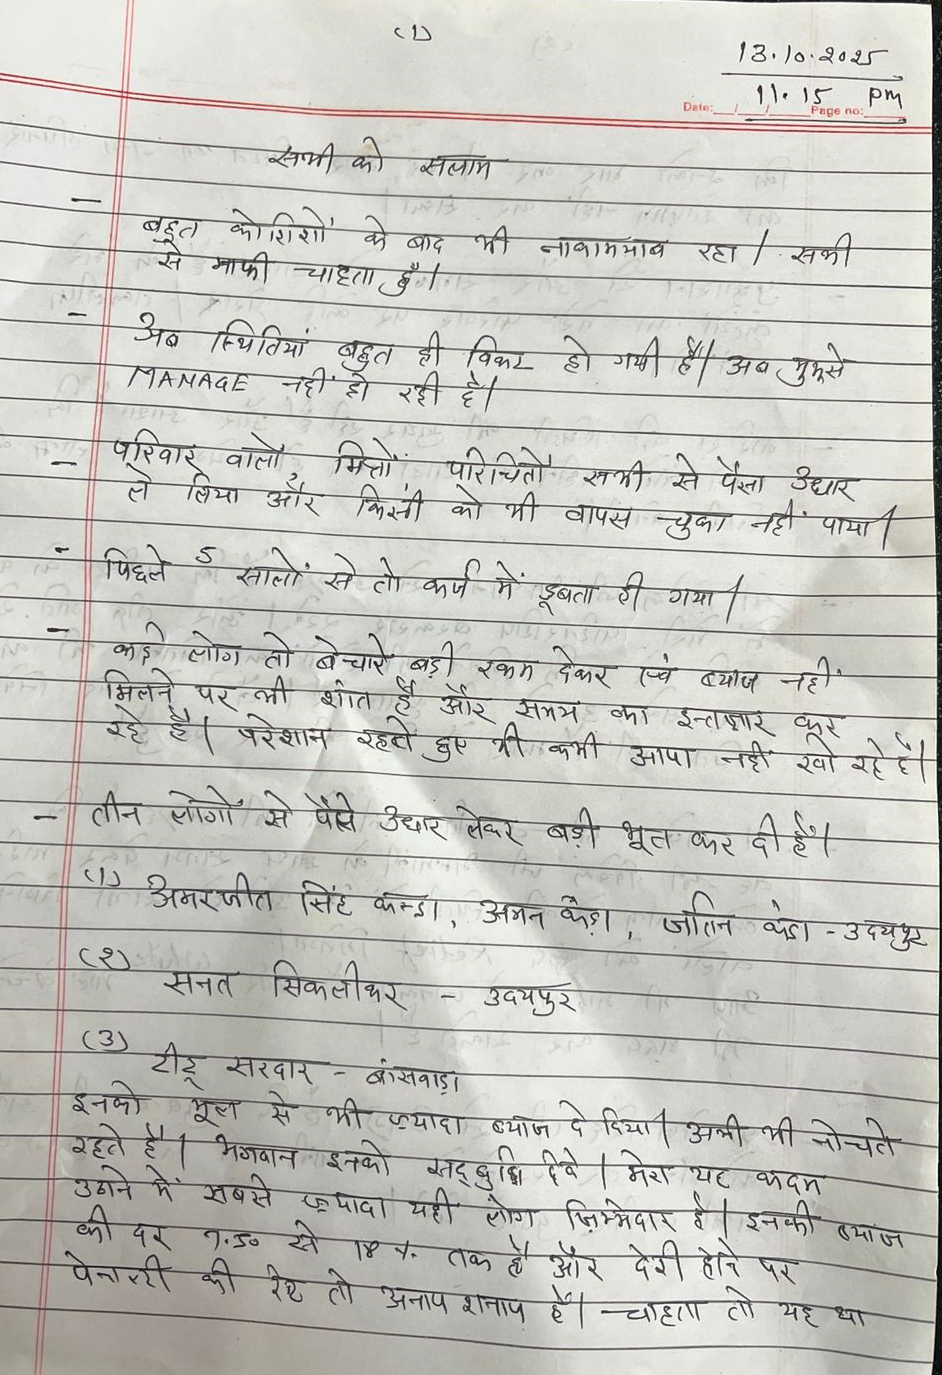 (1)
13.10.2025
11.15 PM
Date:__/__/____ Page no:____
सभी को सलाम
- बहुत कोशिशों के बाद भी नाकामयाब रहा। सभी
से माफी चाहता हूँ।
- अब स्थितियां बहुत ही विकट हो गयी हैं। अब मुझसे
MANAGE नहीं हो रही है।
- परिवार वालों, मित्रों, परिचितों सभी से पैसा उधार
ले लिया और किसी को भी वापस चुका नहीं पाया।
- पिछले 5 सालों से तो कर्ज में डूबता ही गया।
- कई लोग तो बेचारे बड़ी रकम देकर एवं ब्याज नहीं
मिलने पर भी शांत हैं और समय का इन्तज़ार कर
रहे हैं। परेशान रहते हुए भी कभी आपा नहीं खो रहे हैं।
- तीन लोगों से पैसे उधार लेकर बड़ी भूल कर दी है।
(1) अमरजीत सिंह कन्डा, अमन कंडा, जतिन कंडा - उदयपुर
(2) सनत सिकलीकर - उदयपुर
(3) टीटू सरदार - बांसवाड़ा
इनको मूल से भी ज़्यादा ब्याज दे दिया। अभी भी नोचते
रहते हैं। भगवान इनको सद्बुद्धि देवे। मेरा यह कदम
उठाने में सबसे ज़्यादा यही लोग ज़िम्मेदार हैं। इनकी ब्याज
की दर 7.50 से 18 %. तक है और देरी होने पर
पेनाल्टी की रेट तो अनाप शनाप है। चाहता तो यह था